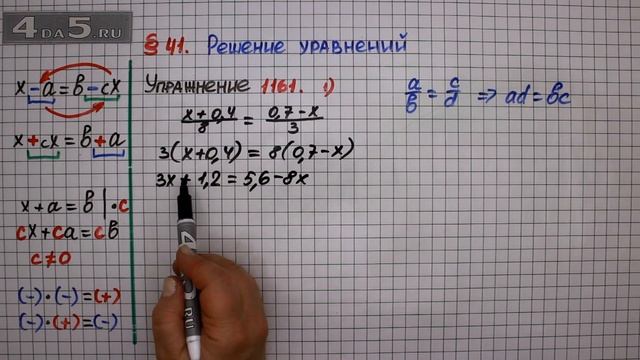 4DA5.RU
§ 41. Решение уравнений
x − a = b − cx
x + cx = b + a
x + a = b | · c
cx + ca = cb
c ≠ 0
(−)·(−)=(+)
(−)·(+)=(−)
Упражнение 1161. 1)
(x + 0,4)/8 = (0,7 − x)/3
3(x+0,4) = 8(0,7−x)
3x + 1,2 = 5,6 − 8x
a/b = c/d ⇒ ad = bc